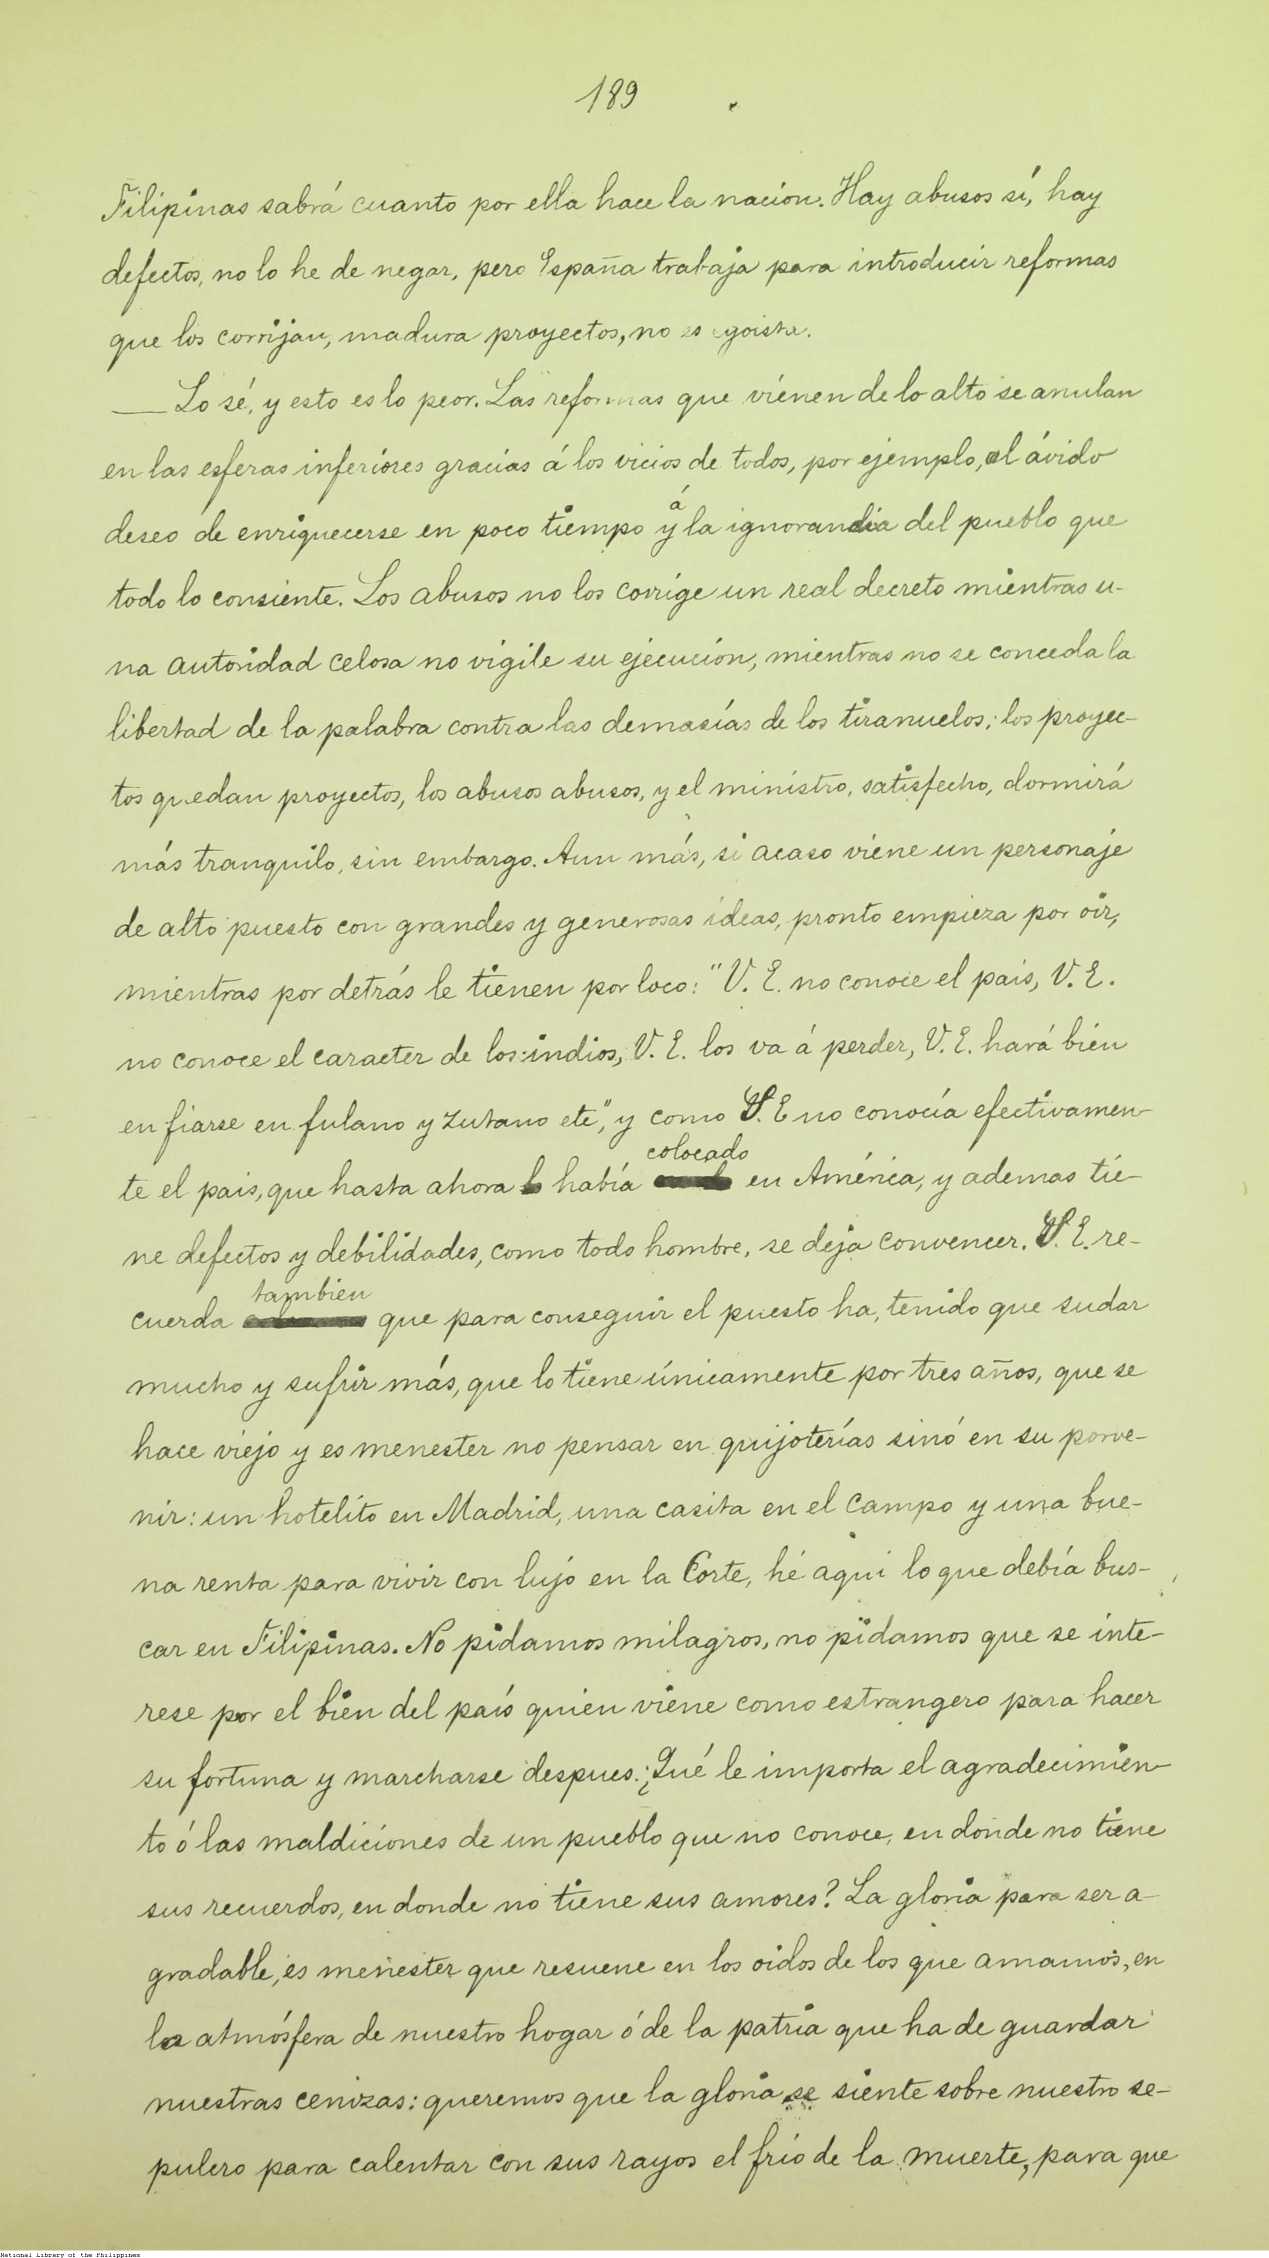 189
Filipinas sabrá cuanto por ella hace la nación. Hay abusos sí, hay
defectos, no lo he de negar, pero España trabaja para introducir reformas
que los corrijan, madura proyectos, no es egoista.
— Lo sé, y esto es lo peor. Las reformas que vienen de lo alto se anulan
en las esferas inferiores gracias á los vicios de todos, por ejemplo, al ávido
deseo de enriquecerse en poco tiempo y á la ignorancia del pueblo que
todo lo consiente. Los abusos no los corrige un real decreto mientras u-
na autoridad celosa no vigile su ejecución, mientras no se conceda la
libertad de la palabra contra las demasías de los tiranuelos; los proyec-
tos quedan proyectos, los abusos abusos, y el ministro, satisfecho, dormirá
más tranquilo, sin embargo. Aun más, si acaso viene un personaje
de alto puesto con grandes y generosas ideas, pronto empieza por oir,
mientras por detrás le tienen por loco: "V. E. no conoce el pais, V. E.
no conoce el caracter de los indios, V. E. los va á perder, V. E. hará bien
en fiarse en fulano y zutano etc", y como S. E no conocía efectivamen-
te el pais, que hasta ahora había colocado en América, y ademas tie-
ne defectos y debilidades, como todo hombre, se deja convencer. S. E. re-
cuerda tambien que para conseguir el puesto ha tenido que sudar
mucho y sufrir más, que lo tiene únicamente por tres años, que se
hace viejo y es menester no pensar en quijoterías sinó en su porve-
nir: un hotelito en Madrid, una casita en el campo y una bue-
na renta para vivir con lujo en la Corte, hé aqui lo que debía bus-
car en Filipinas. No pidamos milagros, no pidamos que se inte-
rese por el bien del país quien viene como estrangero para hacer
su fortuna y marcharse despues. ¿Qué le importa el agradecimien-
to ó las maldiciones de un pueblo que no conoce, en donde no tiene
sus recuerdos, en donde no tiene sus amores? La gloria para ser a-
gradable, es menester que resuene en los oidos de los que amamos, en
la atmósfera de nuestro hogar ó de la patria que ha de guardar
nuestras cenizas: queremos que la gloria se siente sobre nuestro se-
pulcro para calentar con sus rayos el frio de la muerte, para que
National Library of the Philippines